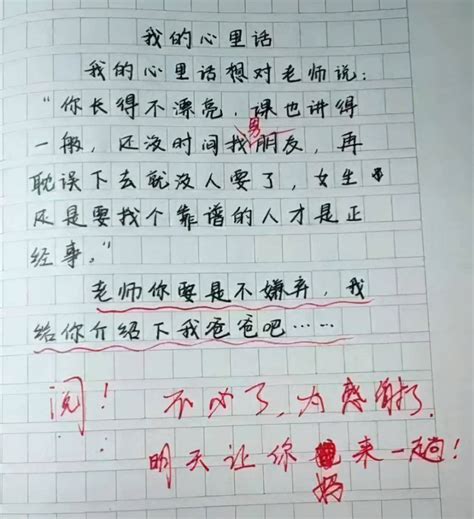 我的心里话
我的心里话想对老师说:
“你长得不漂亮,课也讲得
一般,还没时间找男朋友,再
耽误下去就没人要了,女生
还是要找个靠谱的人才是正
经事。”
老师你要是不嫌弃,我
给你介绍下我爸爸吧……
阅! 不必了,太感谢了,
明天让你妈来一趟!